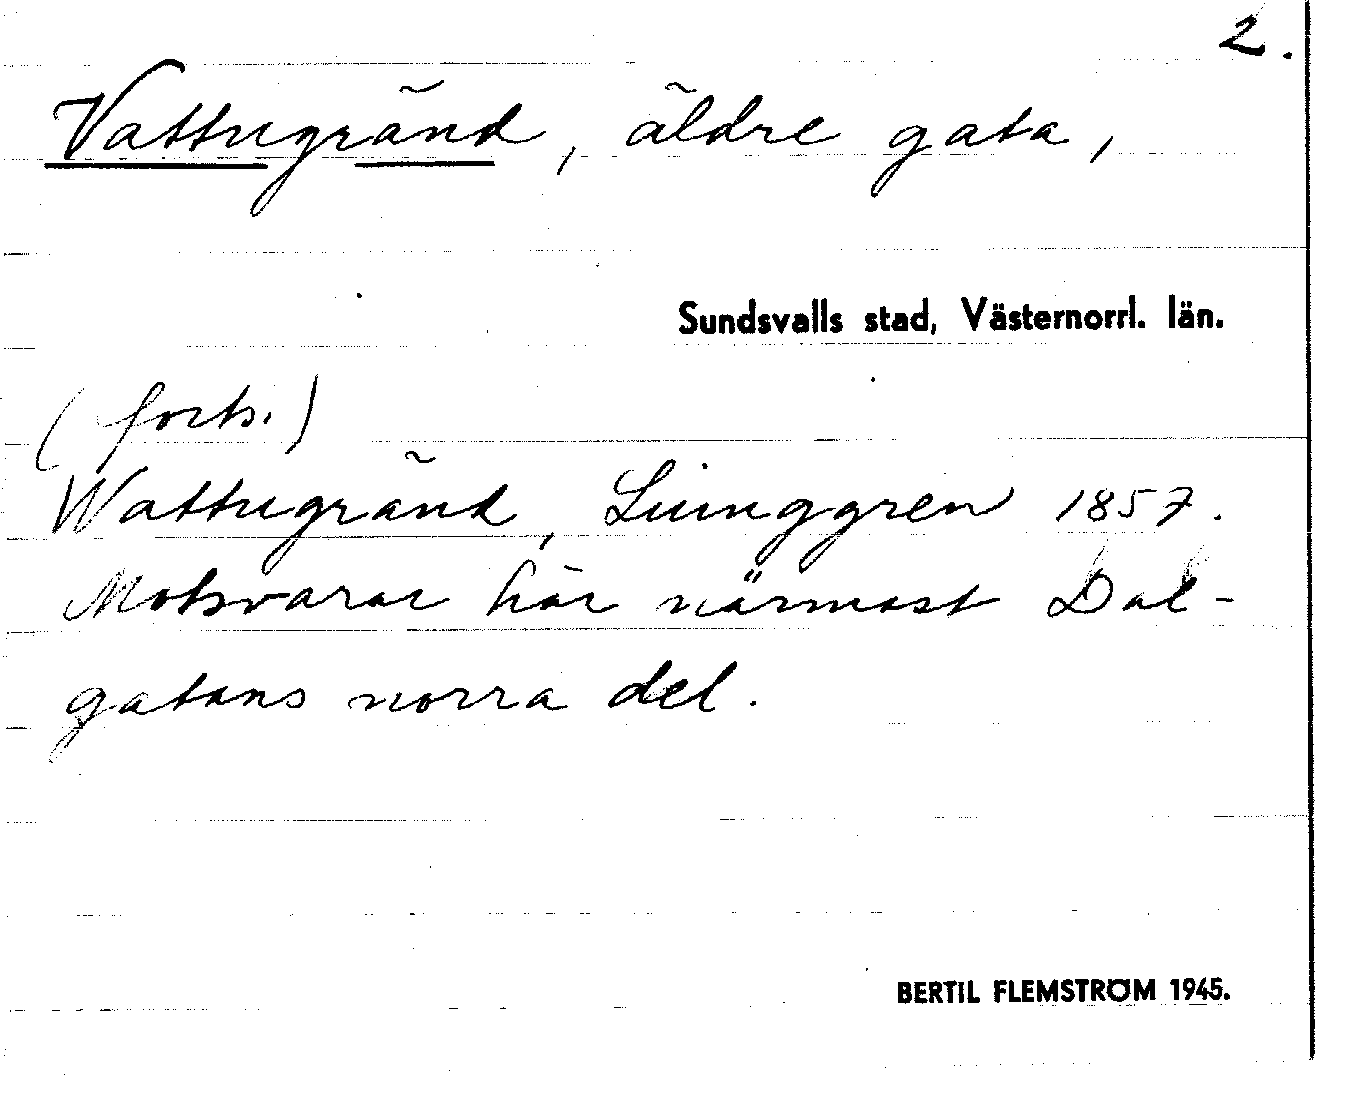 2.
Vattugränd, äldre gata,
Sundsvalls stad, Västernorrl. län.
(forts.)
Wattugränd, Liunggren 1857.
Motsvarar här närmast Dal-
gatans norra del.
BERTIL FLEMSTRÖM 1945.